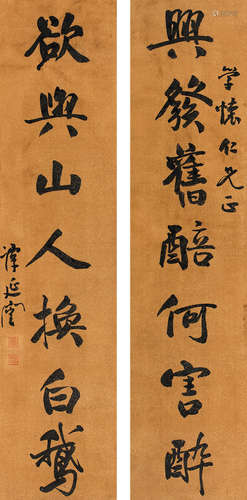 興發舊醅何害醉
学懷仁兄正
欲與山人換白鵝
譚延闓